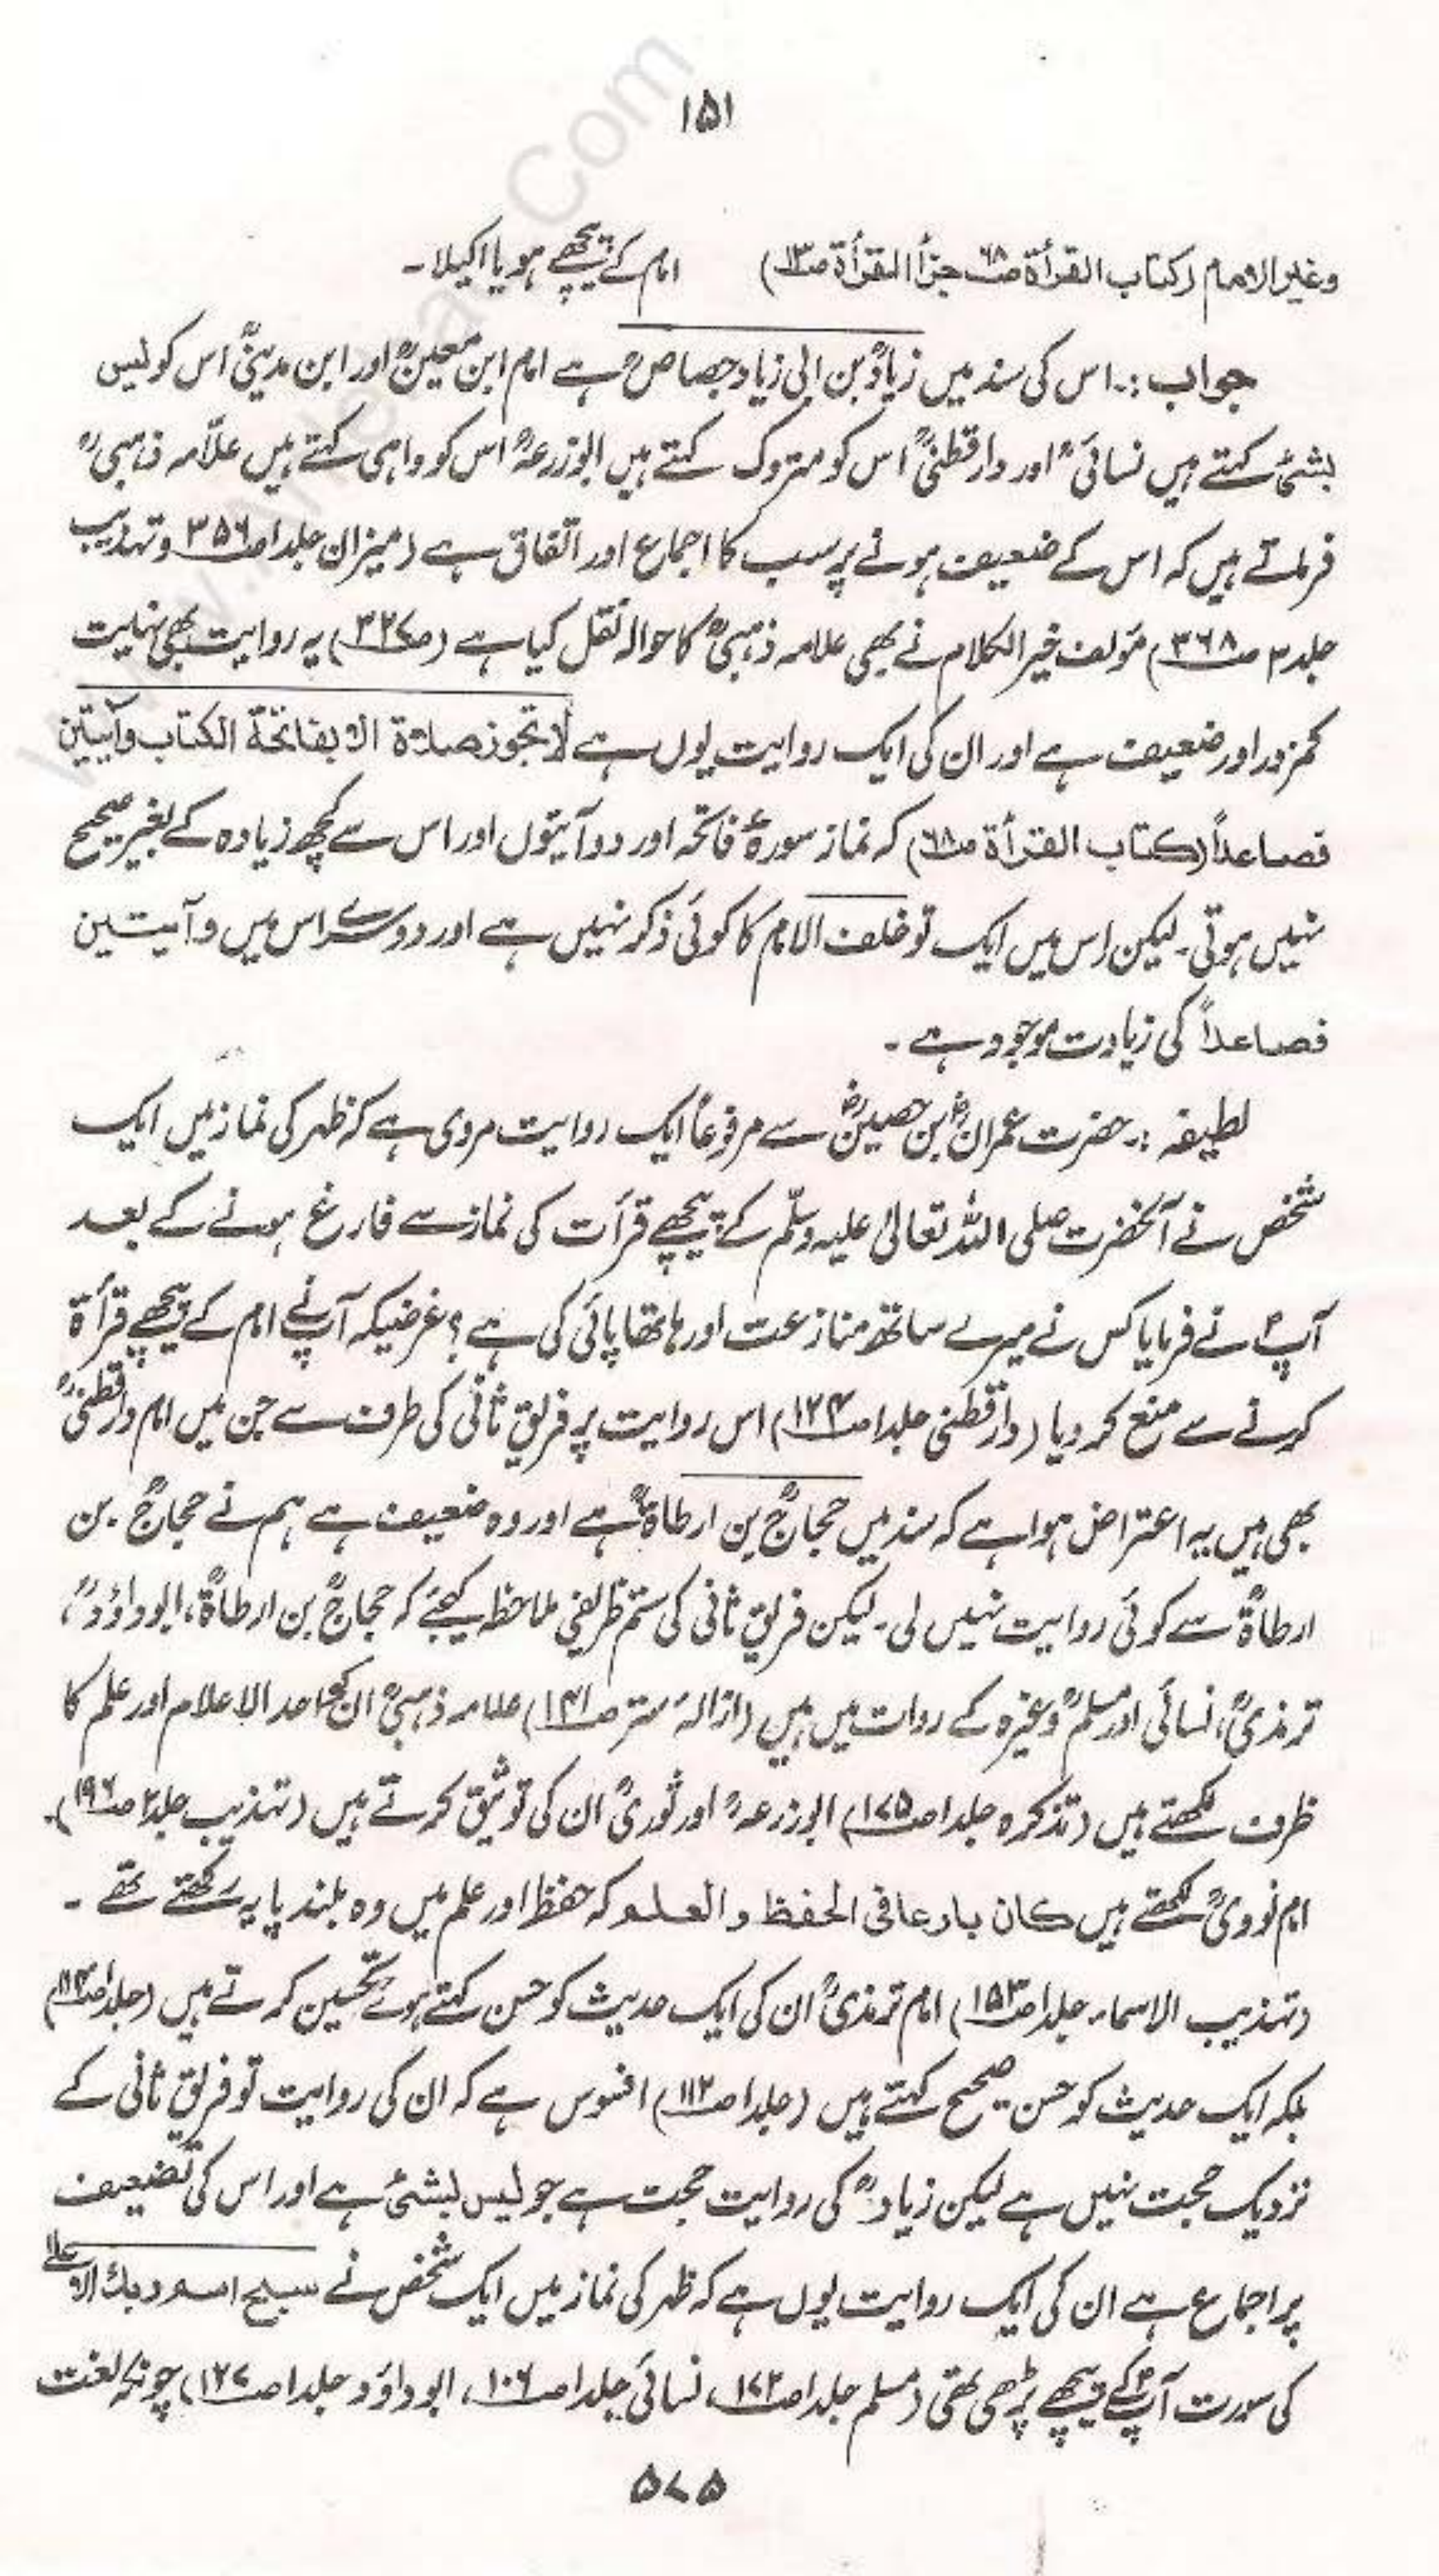 ۱۵۱
وغیر الامام (کتاب القرأۃ ص۶۸ جزأ القرأۃ ص۱۳) امام کے پیچھے ہو یا اکیلا۔
جواب :۔ اس کی سند میں زیادؒ بن ابی زیاد جصاصؒ ہے امام ابن معینؒ اور ابن مدینیؒ اس کو لیس
بشیٔ کہتے ہیں نسائیؒ اور دارقطنیؒ اس کو متروک کہتے ہیں ابوزرعہؒ اس کو واہی کہتے ہیں علّامہ ذہبیؒ
فرماتے ہیں کہ اس کے ضعیف ہونے پر سب کا اجماع اور اتفاق ہے (میزان جلد۱ ص۳۵۶ وتہذیب
جلد۳ ص۳۶۸) مؤلف خیر الکلام نے بھی علامہ ذہبیؒ کا حوالہ نقل کیا ہے (ص۳۲۷) یہ روایت بھی نہایت
کمزور اور ضعیف ہے اور ان کی ایک روایت یوں ہے لا تجوز صلاۃ الا بفاتحۃ الکتاب وآیتین
فصاعداً (کتاب القرأۃ ص۶۸) کہ نماز سورۂ فاتحہ اور دو آیتوں اور اس سے کچھ زیادہ کے بغیر صحیح
نہیں ہوتی۔ لیکن اس میں ایک تو خلف الامام کا کوئی ذکر نہیں ہے اور دوسرے اس میں وآیتین
فصاعداً کی زیادت موجود ہے۔
لطیفہ :۔ حضرت عمرانؓ بن حصینؓ سے مرفوعاً ایک روایت مروی ہے کہ ظہر کی نماز میں ایک
شخص نے آنحضرت صلی اللہ تعالیٰ علیہ وسلّم کے پیچھے قرأت کی نماز سے فارغ ہونے کے بعد
آپؐ نے فرمایا کس نے میرے ساتھ منازعت اور ہاتھا پائی کی ہے؟ غرضیکہ آپؐ نے امام کے پیچھے قرأۃ
کرنے سے منع کر دیا (دارقطنی جلد۱ ص۱۲۴) اس روایت پر فریق ثانی کی طرف سے جن میں امام دارقطنیؒ
بھی ہیں یہ اعتراض ہوا ہے کہ سند میں حجاجؒ بن ارطاۃؒ ہے اور وہ ضعیف ہے ہم نے حجاجؒ بن
ارطاۃؒ سے کوئی روایت نہیں لی۔ لیکن فریق ثانی کی ستم ظریفی ملاحظہ کیجئے کہ حجاجؒ بن ارطاۃؒ، ابوداؤدؒ،
ترمذیؒ، نسائی اور مسلمؒ وغیرہ کے روات میں ہیں (ازالۂ ستر ص۱۴۱) علامہ ذہبیؒ ان کو احد الاعلام اور علم کا
ظرف لکھتے ہیں (تذکرہ جلد۱ ص۱۷۵) ابوزرعہؒ اور ثوریؒ ان کی توثیق کرتے ہیں (تہذیب جلد۲ ص۱۹۶)۔
امام نوویؒ لکھتے ہیں کان بارعا فی الحفظ والعلم کہ حفظ اور علم میں وہ بلند پایہ رکھتے تھے۔
(تہذیب الاسماء جلد۱ ص۱۵۳) امام ترمذیؒ ان کی ایک حدیث کو حسن کہتے ہوئے تحسین کرتے ہیں (جلد۱
بلکہ ایک حدیث کو حسن صحیح کہتے ہیں (جلد۱ ص۱۱۲) افسوس ہے کہ ان کی روایت تو فریق ثانی کے
نزدیک حجت نہیں ہے لیکن زیادؒ کی روایت حجت ہے جو لیس بشیٔ ہے اور اس کی تضعیف
پر اجماع ہے ان کی ایک روایت یوں ہے کہ ظہر کی نماز میں ایک شخص نے سبح اسم ربک الاعلیٰ
کی سورت آپؐ کے پیچھے پڑھی تھی (مسلم جلد۱ ص۱۷۲، نسائی جلد۱ ص۱۰۶، ابوداؤد جلد۱ ص۱۲۷) چونکہ لغت
۵۷۵